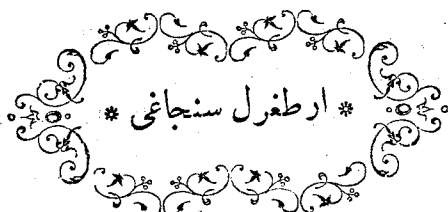 * ارطغرل سنجاغی *